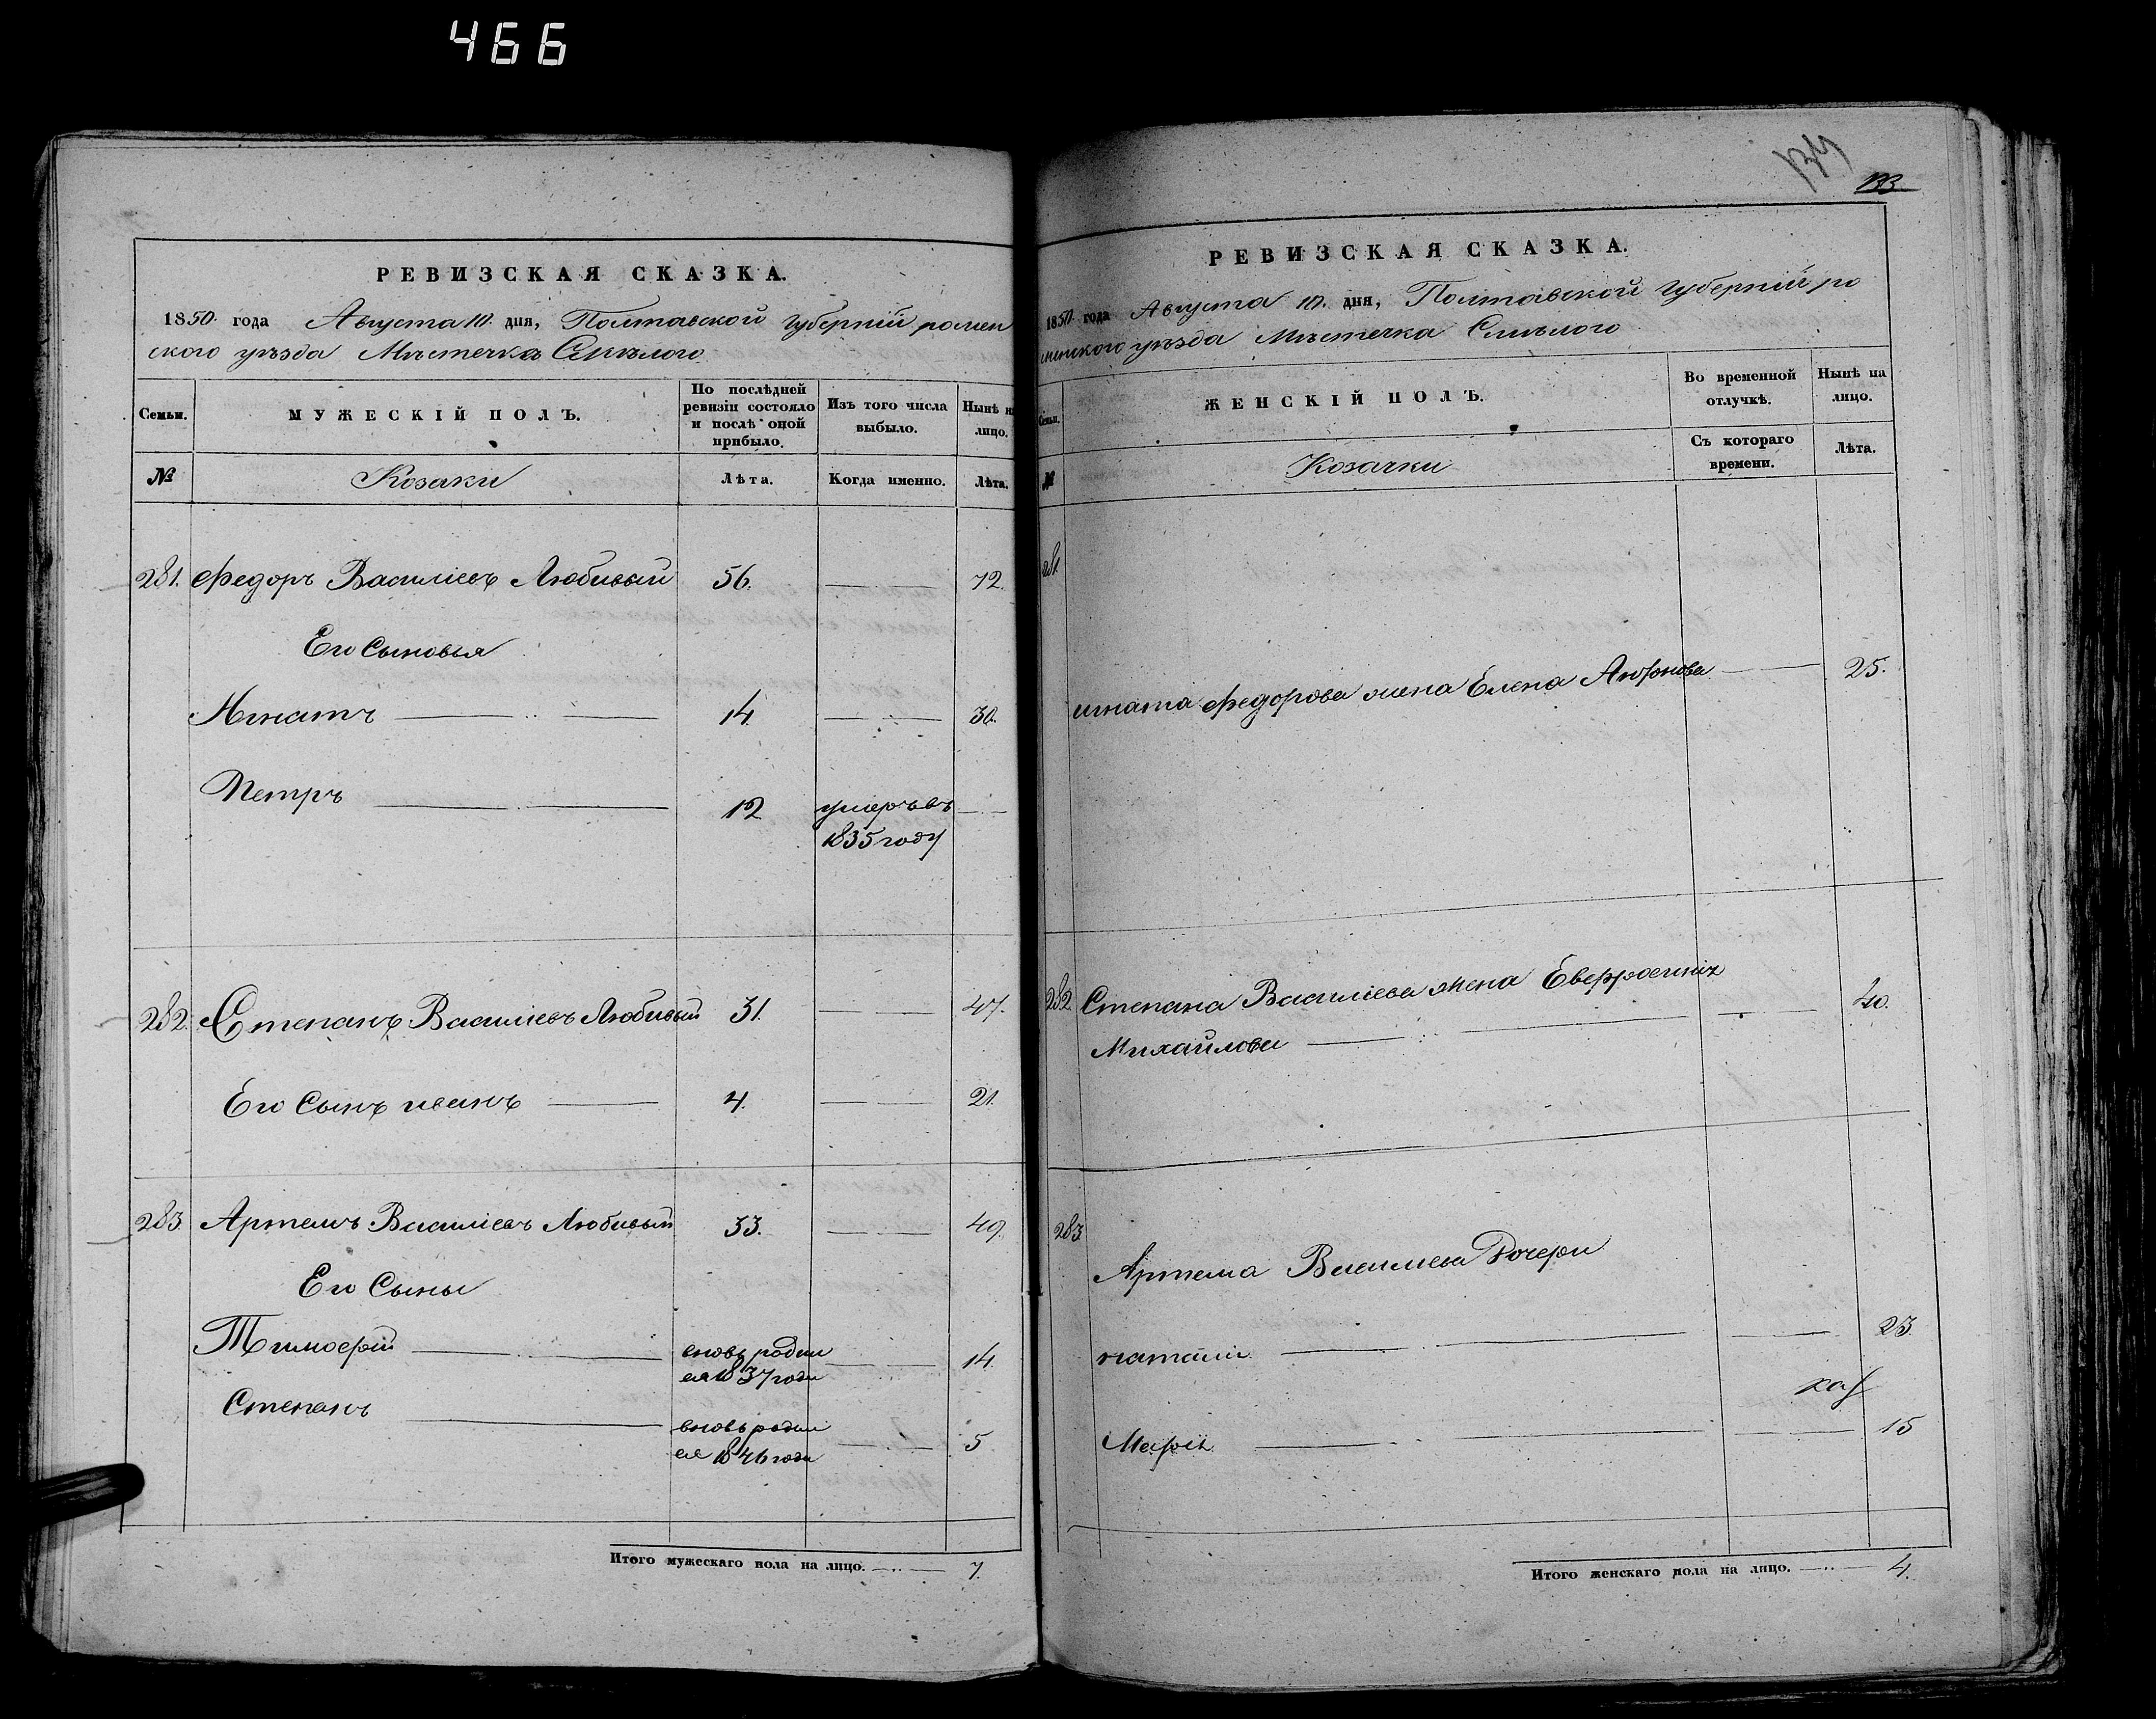 466
РЕВИЗСКАЯ СКАЗКА.
1850 года Августа 10. дня, Полтавской губерніи ромен
ского уѣзда Мѣстечка Смѣлого
Семьи.
МУЖЕСКІЙ ПОЛЪ.
По послѣдней
ревизіи состояло
и послѣ оной
прибыло.
Изъ того числа
выбыло.
Нынѣ на
лицо.
№
Козаки
Лѣта.
Когда именно.
Лѣта.
281. Федоръ Василіевъ Любивый 56. 72.
Его Сыновья
Игнатъ 14. 30.
Петръ 12 умеръ въ
1835 году
282. Степанъ Василіевъ Любивый 31. 47.
Его Сынъ иванъ 4. 21.
283 Артемъ Василіевъ Любивый 33. 49.
Его Сыны
Тимофей вновь родил
ся 1837 года 14.
Степанъ вновь родил
ся 1846 года 5
Итого мужескаго пола на лицо. 7.
133
РЕВИЗСКАЯ СКАЗКА.
1850 года Августа 10. дня, Полтавской губерніи ро
менского уѣзда Мѣстечка Смѣлого
Семьи.
ЖЕНСКІЙ ПОЛЪ.
Во временной
отлучкѣ.
Нынѣ на
лицо.
№
Козачки
Съ котораго
времени.
Лѣта.
281
игната Федорова жена Елена 25.
282 Степана Василіева жена
Михайлова 40.
283
Артема Василіева Дочери
наталія 23.
Марія 15
Итого женскаго пола на лицо. 4.